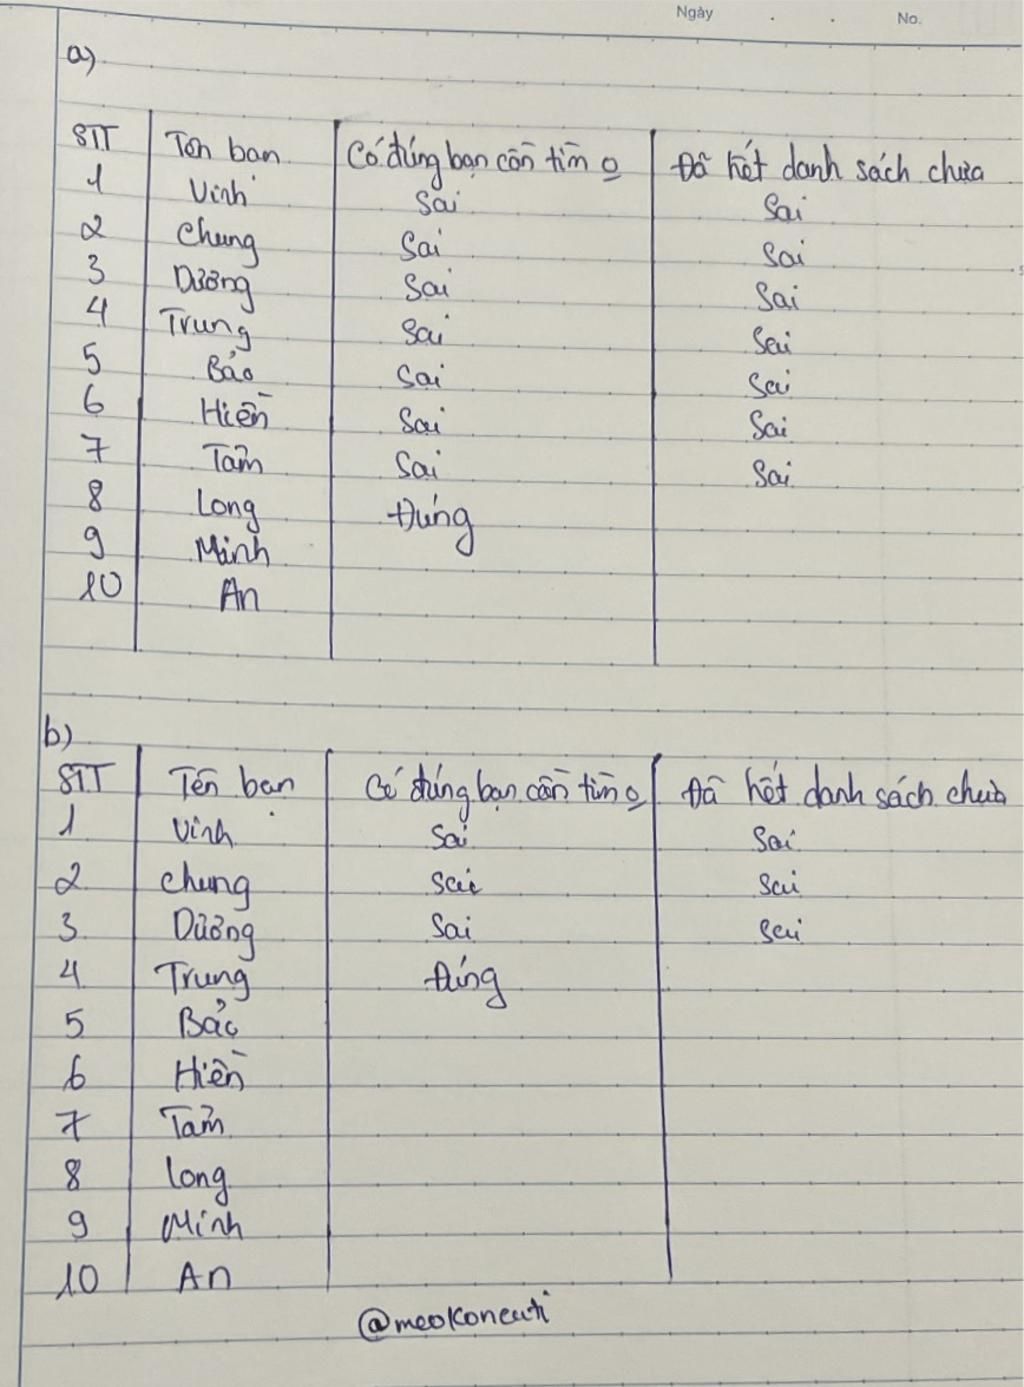 Ngày . . No.
a)
STT Tên bạn Có đúng bạn cần tìm o Đã hết danh sách chưa
1 Vinh Sai Sai
2 Chung Sai Sai
3 Dương Sai Sai
4 Trung Sai Sai
5 Bảo Sai Sai
6 Hiền Sai Sai
7 Tâm Sai Sai
8 Long Đúng
9 Minh
10 An
b)
STT Tên bạn Có đúng bạn cần tìm o Đã hết danh sách chưa
1 Vinh Sai Sai
2 Chung Sai Sai
3 Dương Sai Sai
4 Trung Đúng
5 Bảo
6 Hiền
7 Tâm
8 Long
9 Minh
10 An
@meokoneuti